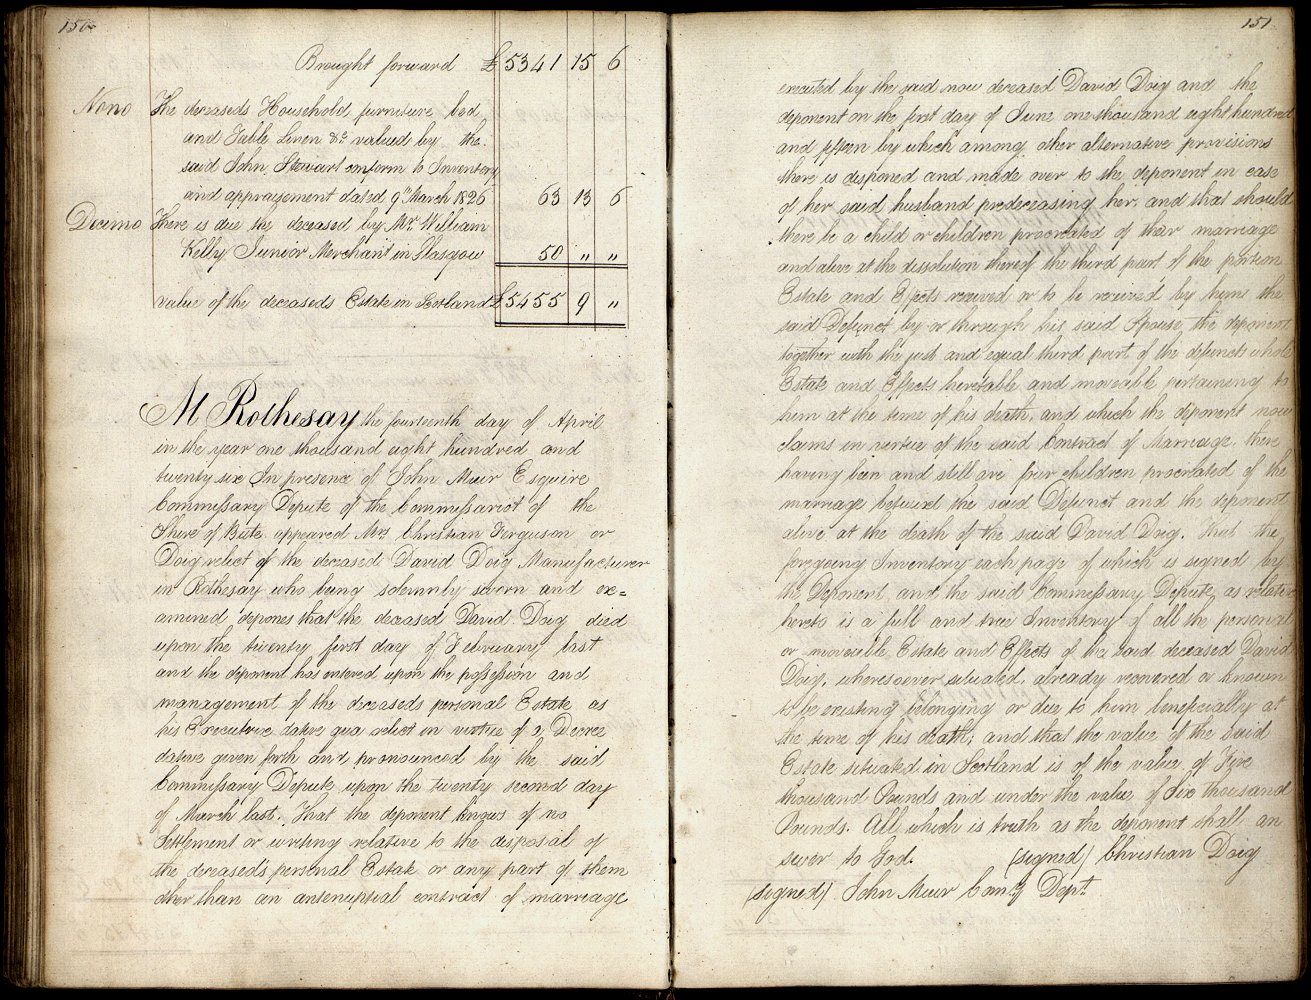 150
Brought forward £ 5341 15 6
Nono The deceaseds Household furniture, bed
and Table Linen &c valued by the
said John Stewart conform to Inventory
and appraisement dated 9th March 1826 63 13 6
Decimo There is due the deceased by Mr. William
Kelly Junior Merchant in Glasgow 50 „ „
value of the deceaseds Estate in Scotland £5455 9 „
At Rothesay the fourteenth day of April
in the year one thousand eight hundred and
twenty six In presence of John Muir Esquire
Commissary Depute of the Commissariot of the
Shire of Bute, appeared Mrs Christian Ferguson or
Doig relict of the deceased David Doig Manufacturer
in Rothesay who being solemnly sworn and ex=
amined depones that the deceased David Doig died
upon the twenty first day of February last
and the deponent has entered upon the possession and
management of the deceaseds personal Estate as
his Executrix dative qua relict in virtue of a Decree
dative given forth and pronounced by the said
Commissary Depute upon the twenty second day
of March last. That the deponent knows of no
Settlement or writing relative to the disposal of
the deceased's personal Estate or any part of them
other than an antenuptial contract of marriage
151
executed by the said now deceased David Doig and the
deponent on the first day of June one thousand eight hundred
and fifteen by which among other alternative provisions
there is disponed and made over to the deponent in case
of her said husband predeceasing her, and that should
there be a child or children procreated of their marriage
and alive at the dissolution thereof the third part of the portion
Estate and Effects received or to be received by him the
said Defunct by or through his said Spouse the deponent
together with the just and equal third part of the defuncts whole
Estate and Effects heretable and moveable pertaining to
him at the time of his death, and which the deponent now
claims in virtue of the said Contract of Marriage, there
having been and still are four children procreated of the
marriage betwixt the said Defunct and the deponent
alive at the death of the said David Doig. That the
foregoing Inventory each page of which is signed by
the Deponent and the said Commissary Depute as relative
hereto is a full and true Inventory of all the personal
or moveable Estate and Effects of the said deceased David
Doig, wheresoever situated, already recovered or known
to be existing belonging or due to him beneficially at
the time of his death; and that the value of the said
Estate situated in Scotland is of the value of Five
thousand Pounds and under the value of Six thousand
Pounds. All which is truth as the deponent shall an
swer to God. (signed) Christian Doig
(signed) John Muir Comy Dept.